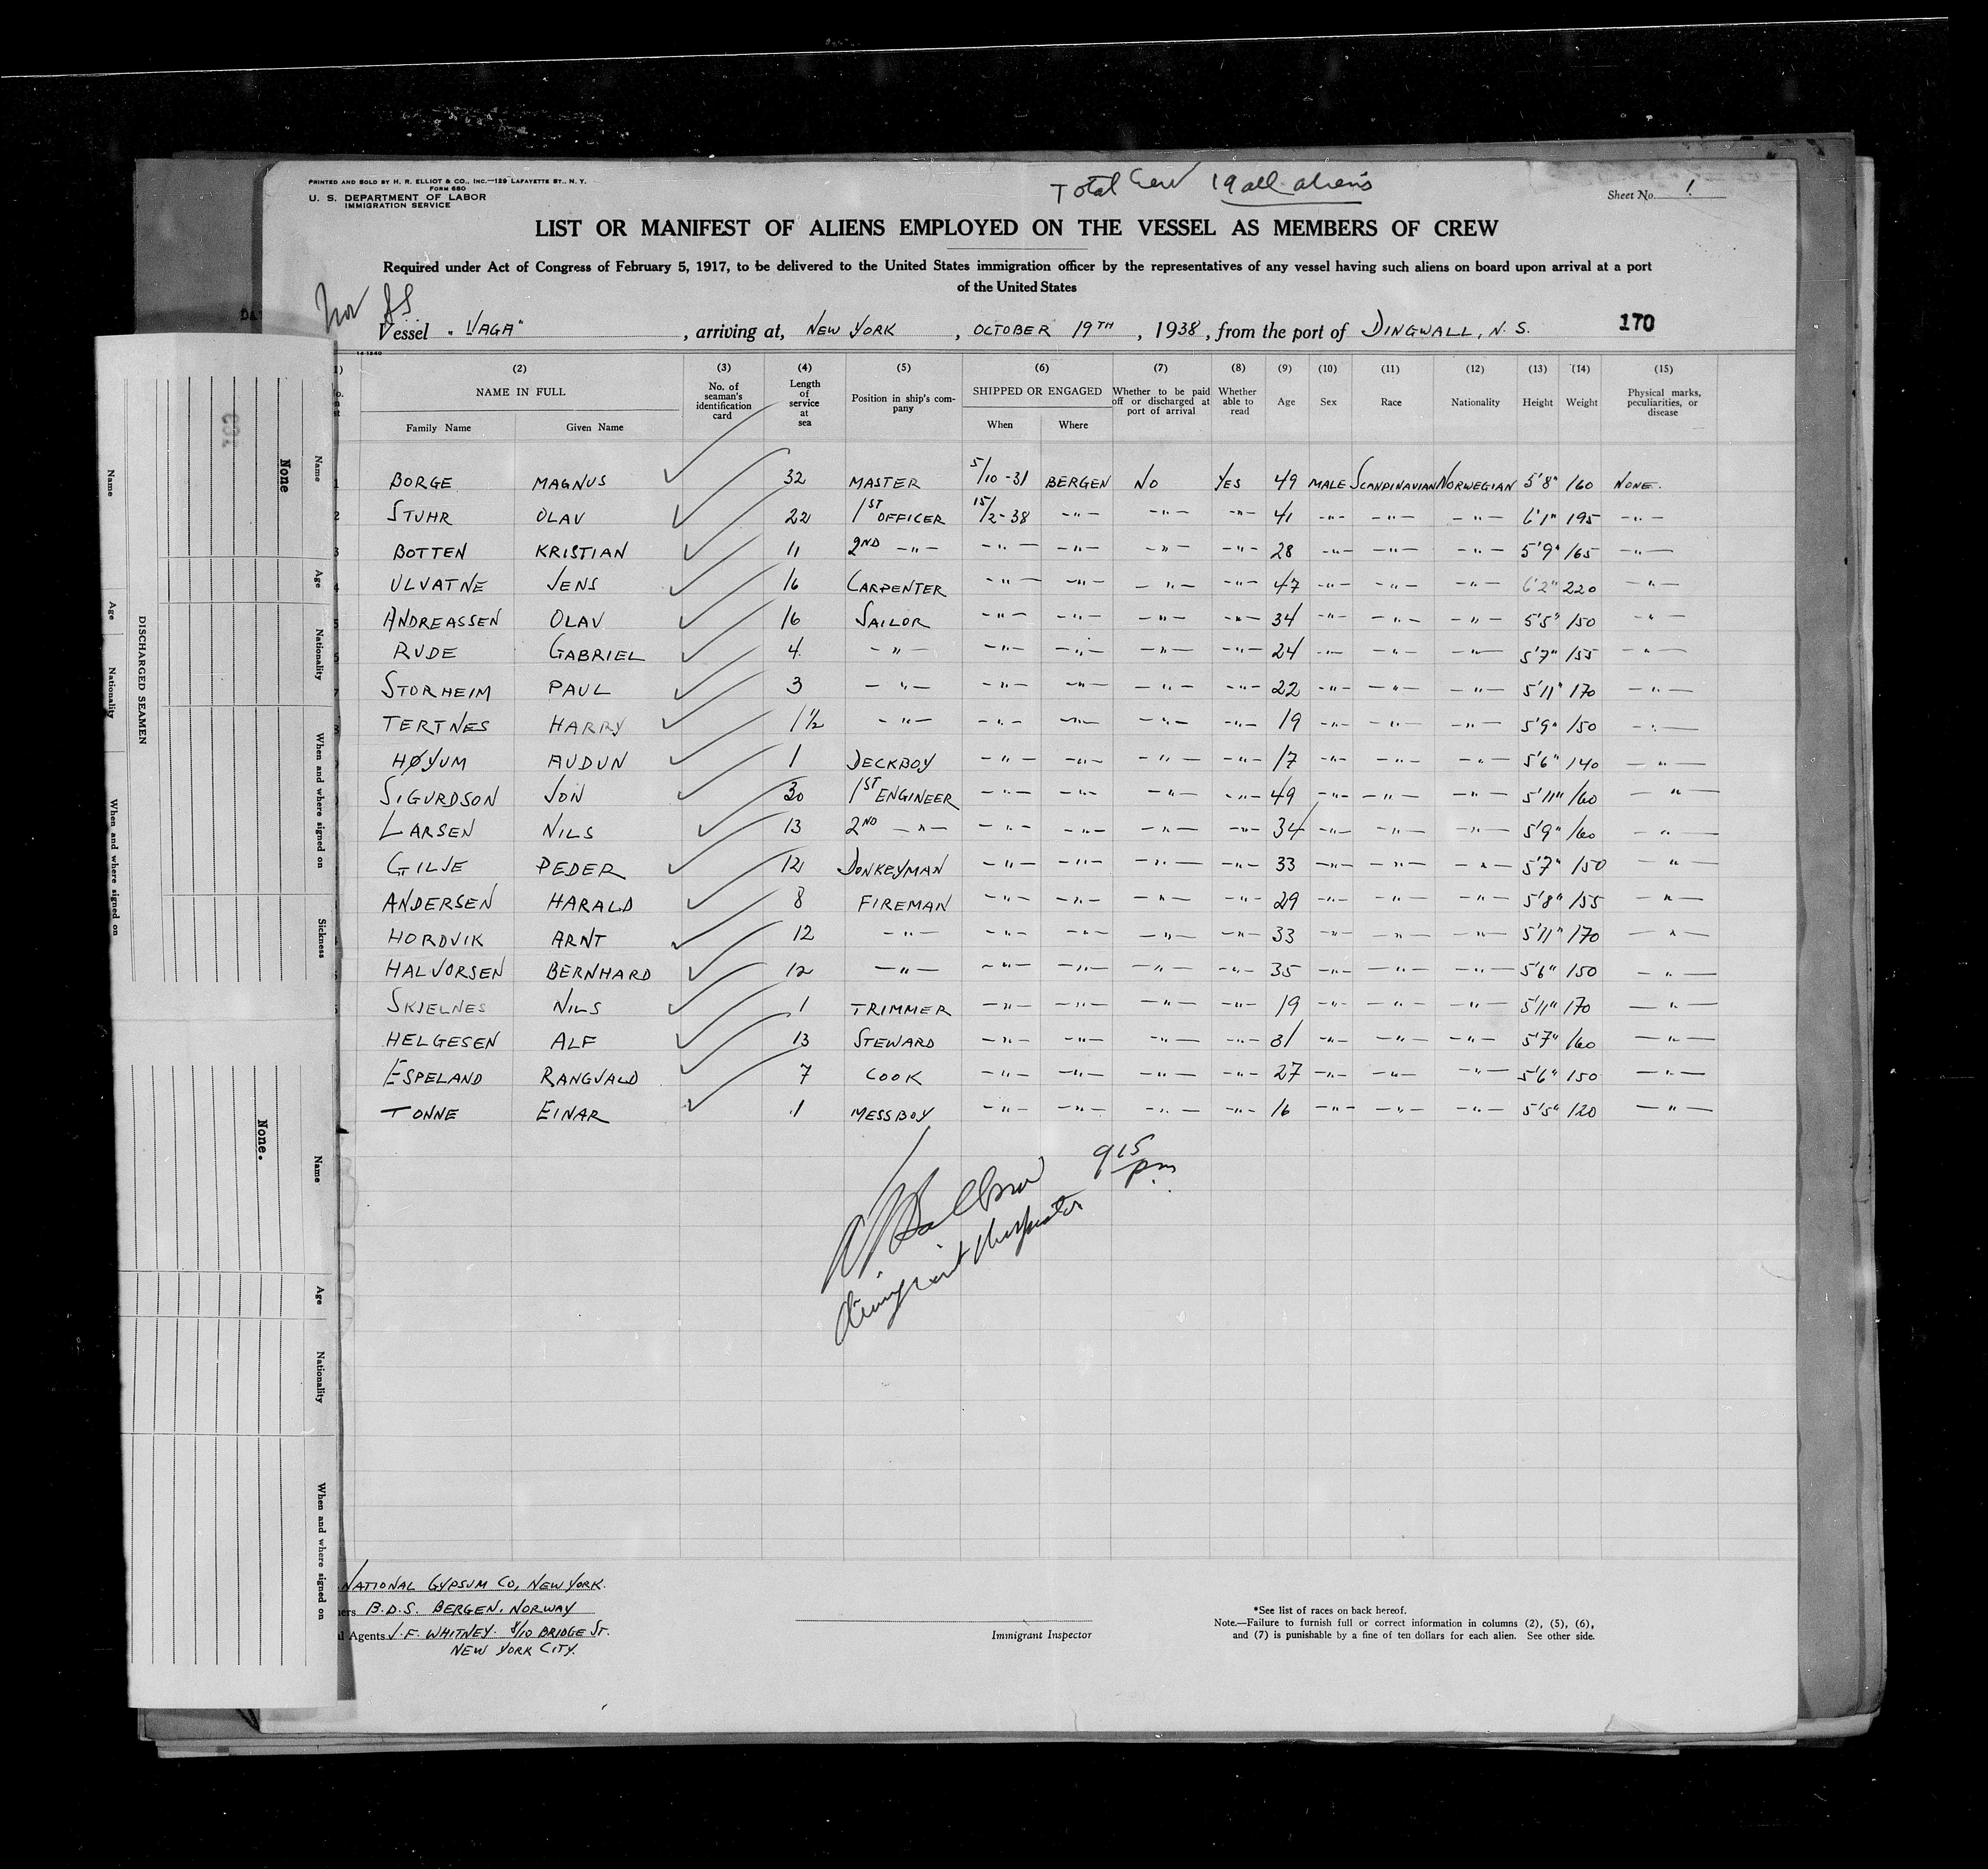 PRINTED AND SOLD BY H. R. ELLIOT & CO., INC.—129 LAFAYETTE ST., N. Y.
FORM 680
U. S. DEPARTMENT OF LABOR
IMMIGRATION SERVICE
Total Crew 19 all aliens
Sheet No. 1
LIST OR MANIFEST OF ALIENS EMPLOYED ON THE VESSEL AS MEMBERS OF CREW
Required under Act of Congress of February 5, 1917, to be delivered to the United States immigration officer by the representatives of any vessel having such aliens on board upon arrival at a port
of the United States
Nor SS
Vessel "VAGA", arriving at, NEW YORK, OCTOBER 19TH, 1938, from the port of DINGWALL, N. S. 170
(2) (3) (4) (5) (6) (7) (8) (9) (10) (11) (12) (13) (14) (15)
NAME IN FULL No. of seaman's identification card Length of service at sea Position in ship's company SHIPPED OR ENGAGED Whether to be paid off or discharged at port of arrival Whether able to read Age Sex Race Nationality Height Weight Physical marks, peculiarities, or disease
Family Name Given Name When Where
1 BORGE MAGNUS 32 MASTER 5/10-31 BERGEN NO YES 49 MALE SCANDINAVIAN NORWEGIAN 5'8" 160 NONE.
2 STUHR OLAV 22 1ST OFFICER 15/2-38 -"- -"- -"- 41 -"- -"- -"- 6'1" 195 -"-
3 BOTTEN KRISTIAN 11 2ND -"- -"- -"- -"- -"- 28 -"- -"- -"- 5'9" 165 -"-
4 ULVATNE JENS 16 CARPENTER -"- -"- -"- -"- 47 -"- -"- -"- 6'2" 220 -"-
5 ANDREASSEN OLAV 16 SAILOR -"- -"- -"- -"- 34 -"- -"- -"- 5'5" 150 -"-
6 RUDE GABRIEL 4 -"- -"- -"- -"- -"- 24 -"- -"- -"- 5'7" 155 -"-
7 STORHEIM PAUL 3 -"- -"- -"- -"- -"- 22 -"- -"- -"- 5'11" 170 -"-
8 TERTNES HARRY 1½ -"- -"- -"- -"- -"- 19 -"- -"- -"- 5'9" 150 -"-
HØYUM AUDUN 1 DECKBOY -"- -"- -"- -"- 17 -"- -"- -"- 5'6" 140 -"-
SIGURDSON JON 30 1ST ENGINEER -"- -"- -"- -"- 49 -"- -"- -"- 5'11" 160 -"-
LARSEN NILS 13 2ND -"- -"- -"- -"- -"- 34 -"- -"- -"- 5'9" 160 -"-
GILJE PEDER 12 DONKEYMAN -"- -"- -"- -"- 33 -"- -"- -"- 5'7" 150 -"-
ANDERSEN HARALD 8 FIREMAN -"- -"- -"- -"- 29 -"- -"- -"- 5'8" 155 -"-
HORDVIK ARNT 12 -"- -"- -"- -"- -"- 33 -"- -"- -"- 5'11" 170 -"-
HALVORSEN BERNHARD 12 -"- -"- -"- -"- -"- 35 -"- -"- -"- 5'6" 150 -"-
SKJELNES NILS 1 TRIMMER -"- -"- -"- -"- 19 -"- -"- -"- 5'11" 170 -"-
HELGESEN ALF 13 STEWARD -"- -"- -"- -"- 31 -"- -"- -"- 5'7" 160 -"-
ESPELAND RANGVALD 7 COOK -"- -"- -"- -"- 27 -"- -"- -"- 5'6" 150 -"-
TONNE EINAR 1 MESSBOY -"- -"- -"- -"- 16 -"- -"- -"- 5'5" 120 -"-
9 15 pm
Immigrant Inspector
NATIONAL GYPSUM CO, NEW YORK.
B.D.S. BERGEN. NORWAY
Agents J.F. WHITNEY. 8/10 BRIDGE ST.
NEW YORK CITY.
Immigrant Inspector
*See list of races on back hereof.
Note.—Failure to furnish full or correct information in columns (2), (5), (6),
and (7) is punishable by a fine of ten dollars for each alien. See other side.
DISCHARGED SEAMEN
Name Age Nationality When and where signed on
Name Age Nationality When and where signed on Sickness
None
Name Age Nationality When and where signed on
None.